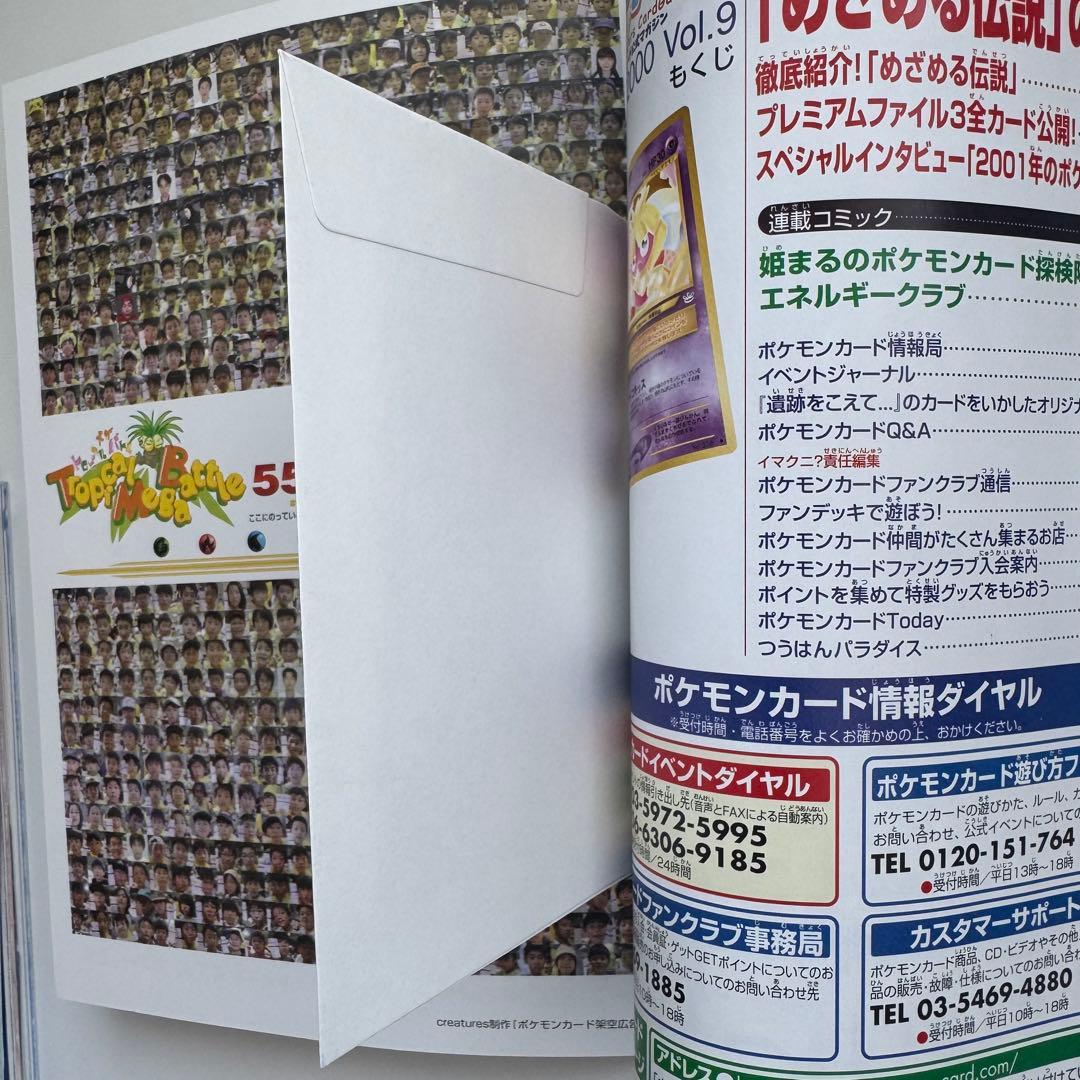 Tropical Mega Battle
55
ここにのってい
creatures制作「ポケモンカード架空広告
マガジン
000 Vol.9
もくじ
「めざめる伝説」の
徹底紹介!「めざめる伝説」
プレミアムファイル3全カード公開!
スペシャルインタビュー「2001年のポケ
連載コミック
姫まるのポケモンカード探検隊
エネルギークラブ
ポケモンカード情報局
イベントジャーナル
『遺跡をこえて...』のカードをいかしたオリジナ
ポケモンカードQ&A
イマクニ?責任編集
ポケモンカードファンクラブ通信
ファンデッキで遊ぼう!
ポケモンカード仲間がたくさん集まるお店
ポケモンカードファンクラブ入会案内
ポイントを集めて特製グッズをもらおう
ポケモンカードToday
つうはんパラダイス
ポケモンカード情報ダイヤル
※受付時間・電話番号をよくお確かめの上、おかけください。
カードイベントダイヤル
引き出し先(音声とFAXによる自動案内)
3-5972-5995
6-6306-9185
時間/24時間
ポケモンカード遊び方フ
ポケモンカードの遊びかた、ルール、カ
お問い合わせ、公式イベントについての
TEL 0120-151-764
●受付時間/平日13時〜18時
ードファンクラブ事務局
会・会員証・ゲットGETポイントについてのお
のお申し込みについてのお問い合わせ先
9-1885
10時〜18時
カスタマーサポート
ポケモンカード商品、CD・ビデオやその他
品の販売・故障・仕様についてのお問い合わ
TEL 03-5469-4880
●受付時間/平日10時〜18時
アドレス
card.com/